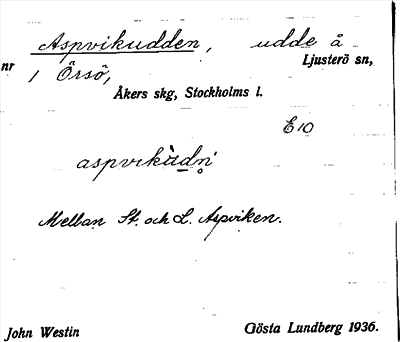 Aspvikudden, udde å
nr 1 Örsö, Ljusterö sn,
Åkers skg, Stockholms l.
E10
aspvikùdn̥
Mellan St. och L. Aspviken.
John Westin Gösta Lundberg 1936.